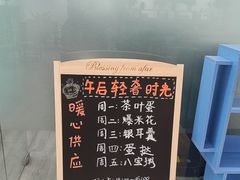 Blessing from afar
午后轻奢时光
暖心供应
周一:茶叶蛋
周二:爆米花
周三:银耳羹
周四:蛋挞
周五:八宝粥